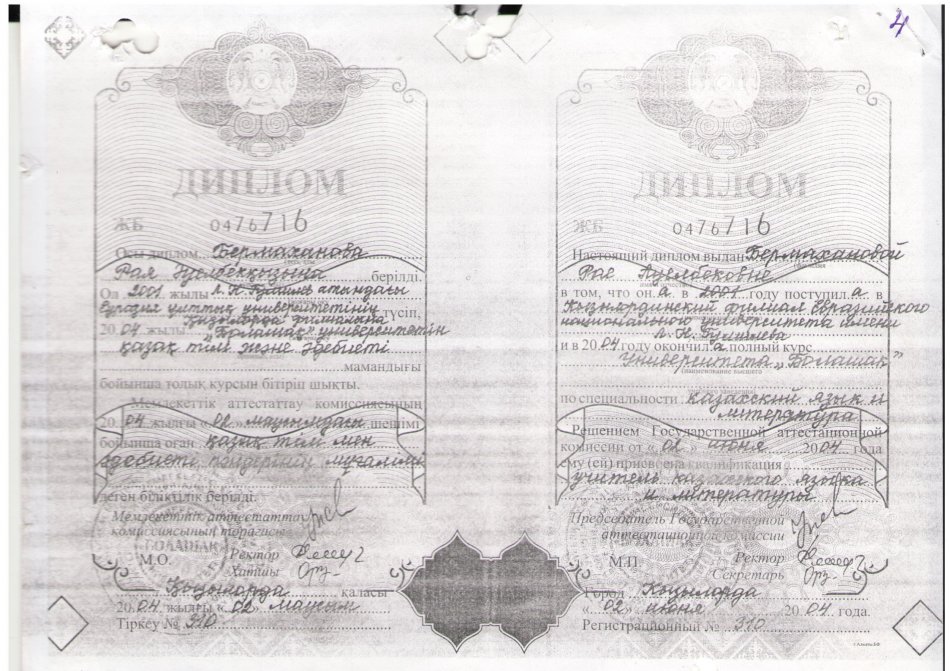 4
ДИПЛОМ
ЖБ 0476716
Осы диплом Бермаханова
Рая берілді.
Ол 2001 жылы Л. Н. Гумилев атындағы
Еуразия ұлттық университетінің
филиалына түсіп,
2004 жылы "Болашақ" университетін
қазақ тілі және әдебиеті
мамандығы
бойынша толық курсын бітіріп шықты.
Мемлекеттік аттестаттау комиссиясының
2004 жылғы «02» маусымдағы шешімі
бойынша оған қазақ тілі мен
әдебиеті пәндерінің мұғалімі
деген біліктілік берілді.
Мемлекеттік аттестаттау
комиссиясының төрағасы
БОЛАШАК
М.О. Ректор
Хатшы
Қызылорда қаласы
2004 жылғы «02» маусым
Тіркеу № 310
ДИПЛОМ
ЖБ 0476716
Настоящий диплом выдан Бермахановой
Рае
в том, что он а в 2001 году поступил а в
Кызылординский филиал Евразийского
национального университета имени
Л. Н. Гумилева
и в 2004 году окончил а полный курс
Университета „Болашак"
наименование высшего
по специальности казахский язык и
литература
Решением Государственной аттестационной
комиссии от «02» июня 2004 года
ему (ей) присвоена квалификация
учитель казахского языка
и литературы
Председатель Государственной
аттестационной комиссии
М.П. Ректор
Секретарь
Город Кызылорда
«02» июня 2004 года.
Регистрационный № 310